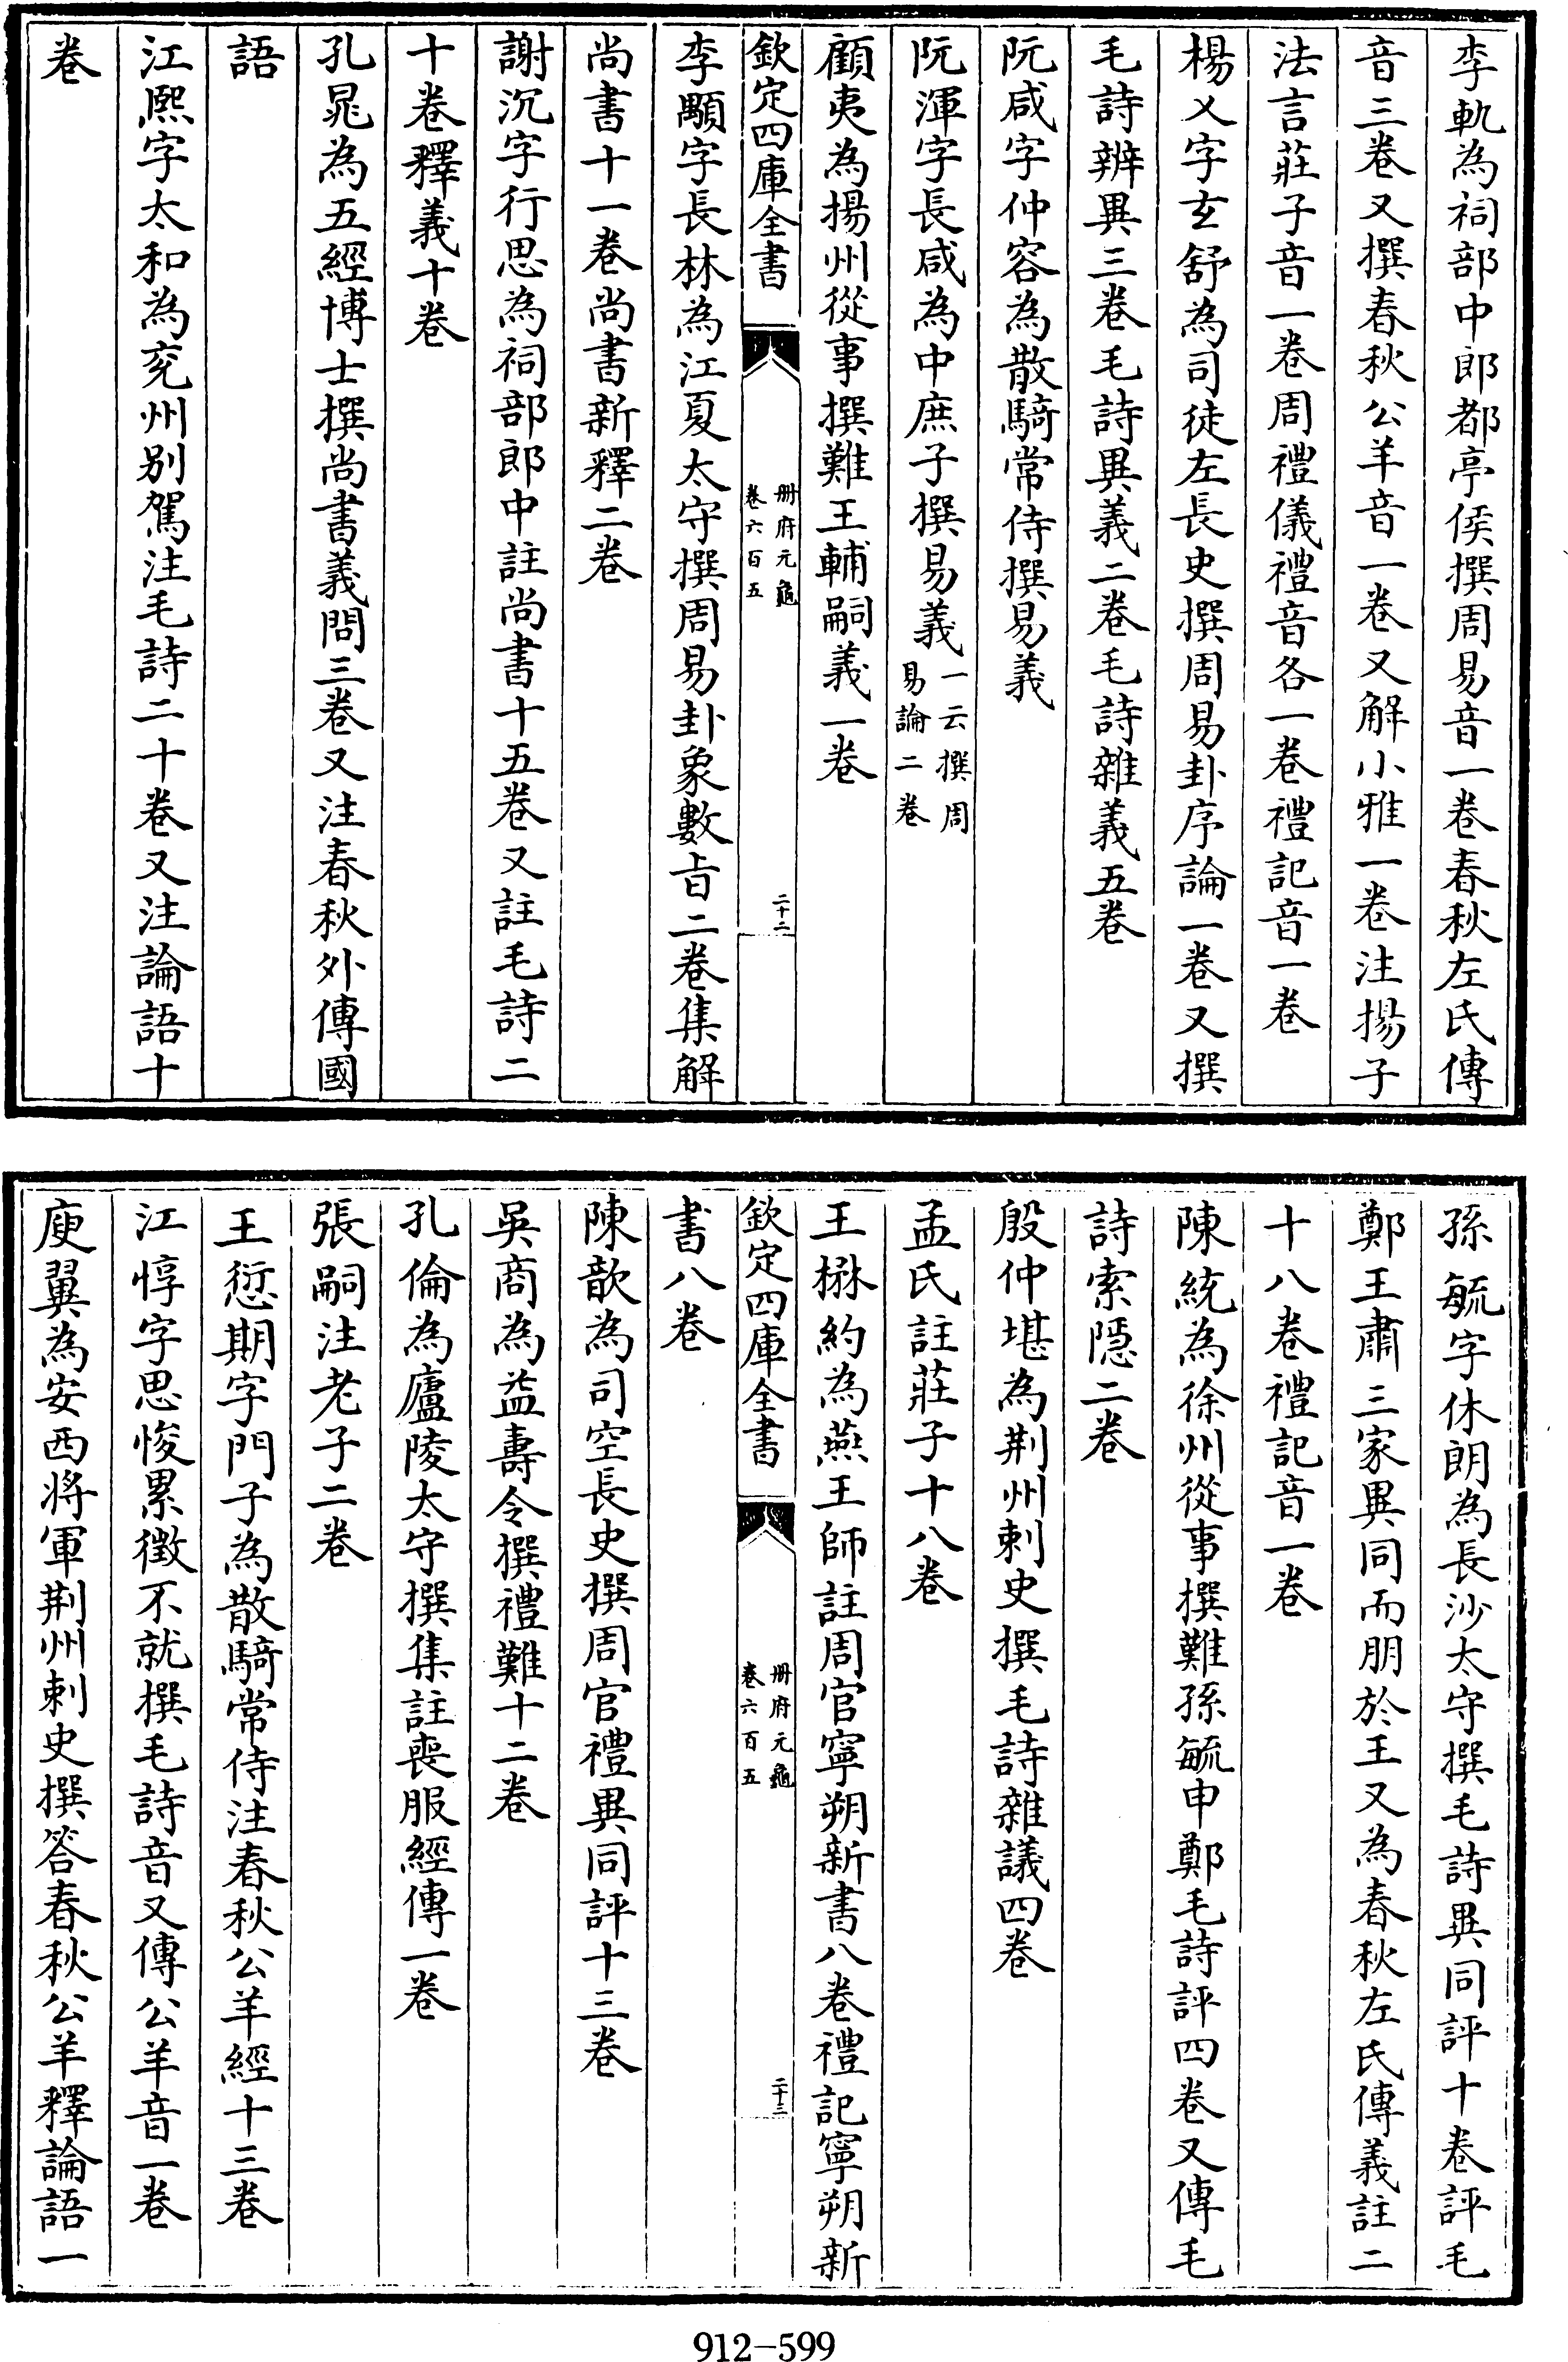 李軌為祠部中郎都亭侯撰周易音一卷春秋左氏傳
音三卷又撰春秋公羊音一卷又解小雅一卷注揚子
法言莊子音一卷周禮儀禮音各一卷禮記音一卷
楊乂字玄舒為司徒左長史撰周易卦序論一卷又撰
毛詩辨異三卷毛詩異義二卷毛詩雜義五卷
阮咸字仲容為散騎常侍撰易義
阮渾字長咸為中庶子撰易義一云撰周易論二卷
顧夷為揚州從事撰難王輔嗣義一卷
欽定四庫全書
冊府元龜
卷六百五
二十二
李顒字長林為江夏太守撰周易卦象數旨二卷集解
尚書十一卷尚書新釋二卷
謝沉字行思為祠部郎中註尚書十五卷又註毛詩二
十卷釋義十卷
孔晁為五經博士撰尚書義問三卷又注春秋外傳國
語
江熙字太和為兖州別駕注毛詩二十卷又注論語十
卷
孫毓字休朗為長沙太守撰毛詩異同評十卷評毛
鄭王肅三家異同而朋於王又為春秋左氏傳義註二
十八卷禮記音一卷
陳統為徐州從事撰難孫毓申鄭毛詩評四卷又傳毛
詩索隱二卷
殷仲堪為荆州刺史撰毛詩雜議四卷
孟氏註莊子十八卷
王楙約為燕王師註周官寧朔新書八卷禮記寧朔新
欽定四庫全書
冊府元龜
卷六百五
二十三
書八卷
陳歆為司空長史撰周官禮異同評十三卷
吳商為益壽令撰禮難十二卷
孔倫為廬陵太守撰集註喪服經傳一卷
張嗣注老子二卷
王愆期字門子為散騎常侍注春秋公羊經十三卷
江惇字思悛累徵不就撰毛詩音又傳公羊音一卷
庾翼為安西將軍荆州刺史撰答春秋公羊釋論語一
912-599